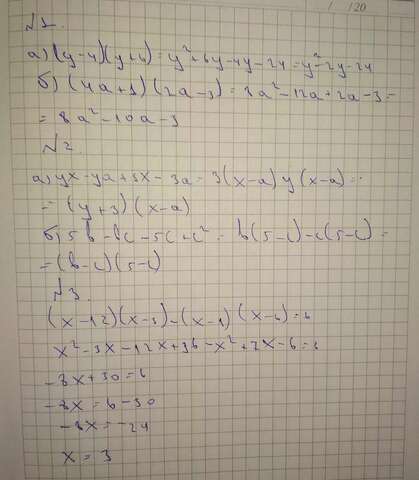 / /20
№1.
а) (y-4)(y+6)=y²+6y-4y-24=y²-2y-24
б) (4a+1)(2a-3)=8a²-12a+2a-3=
=8a²-10a-3
№2.
а) yx-ya+3x-3a=3(x-a)y(x-a)=
=(y+3)(x-a)
б) 5b-bc-5c+c²=b(5-c)-c(5-c)=
=(b-c)(5-c)
№3.
(x-12)(x-3)-(x-1)(x-6)=6
x²-3x-12x+36-x²+7x-6=6
-8x+30=6
-8x=6-30
-8x=-24
x=3